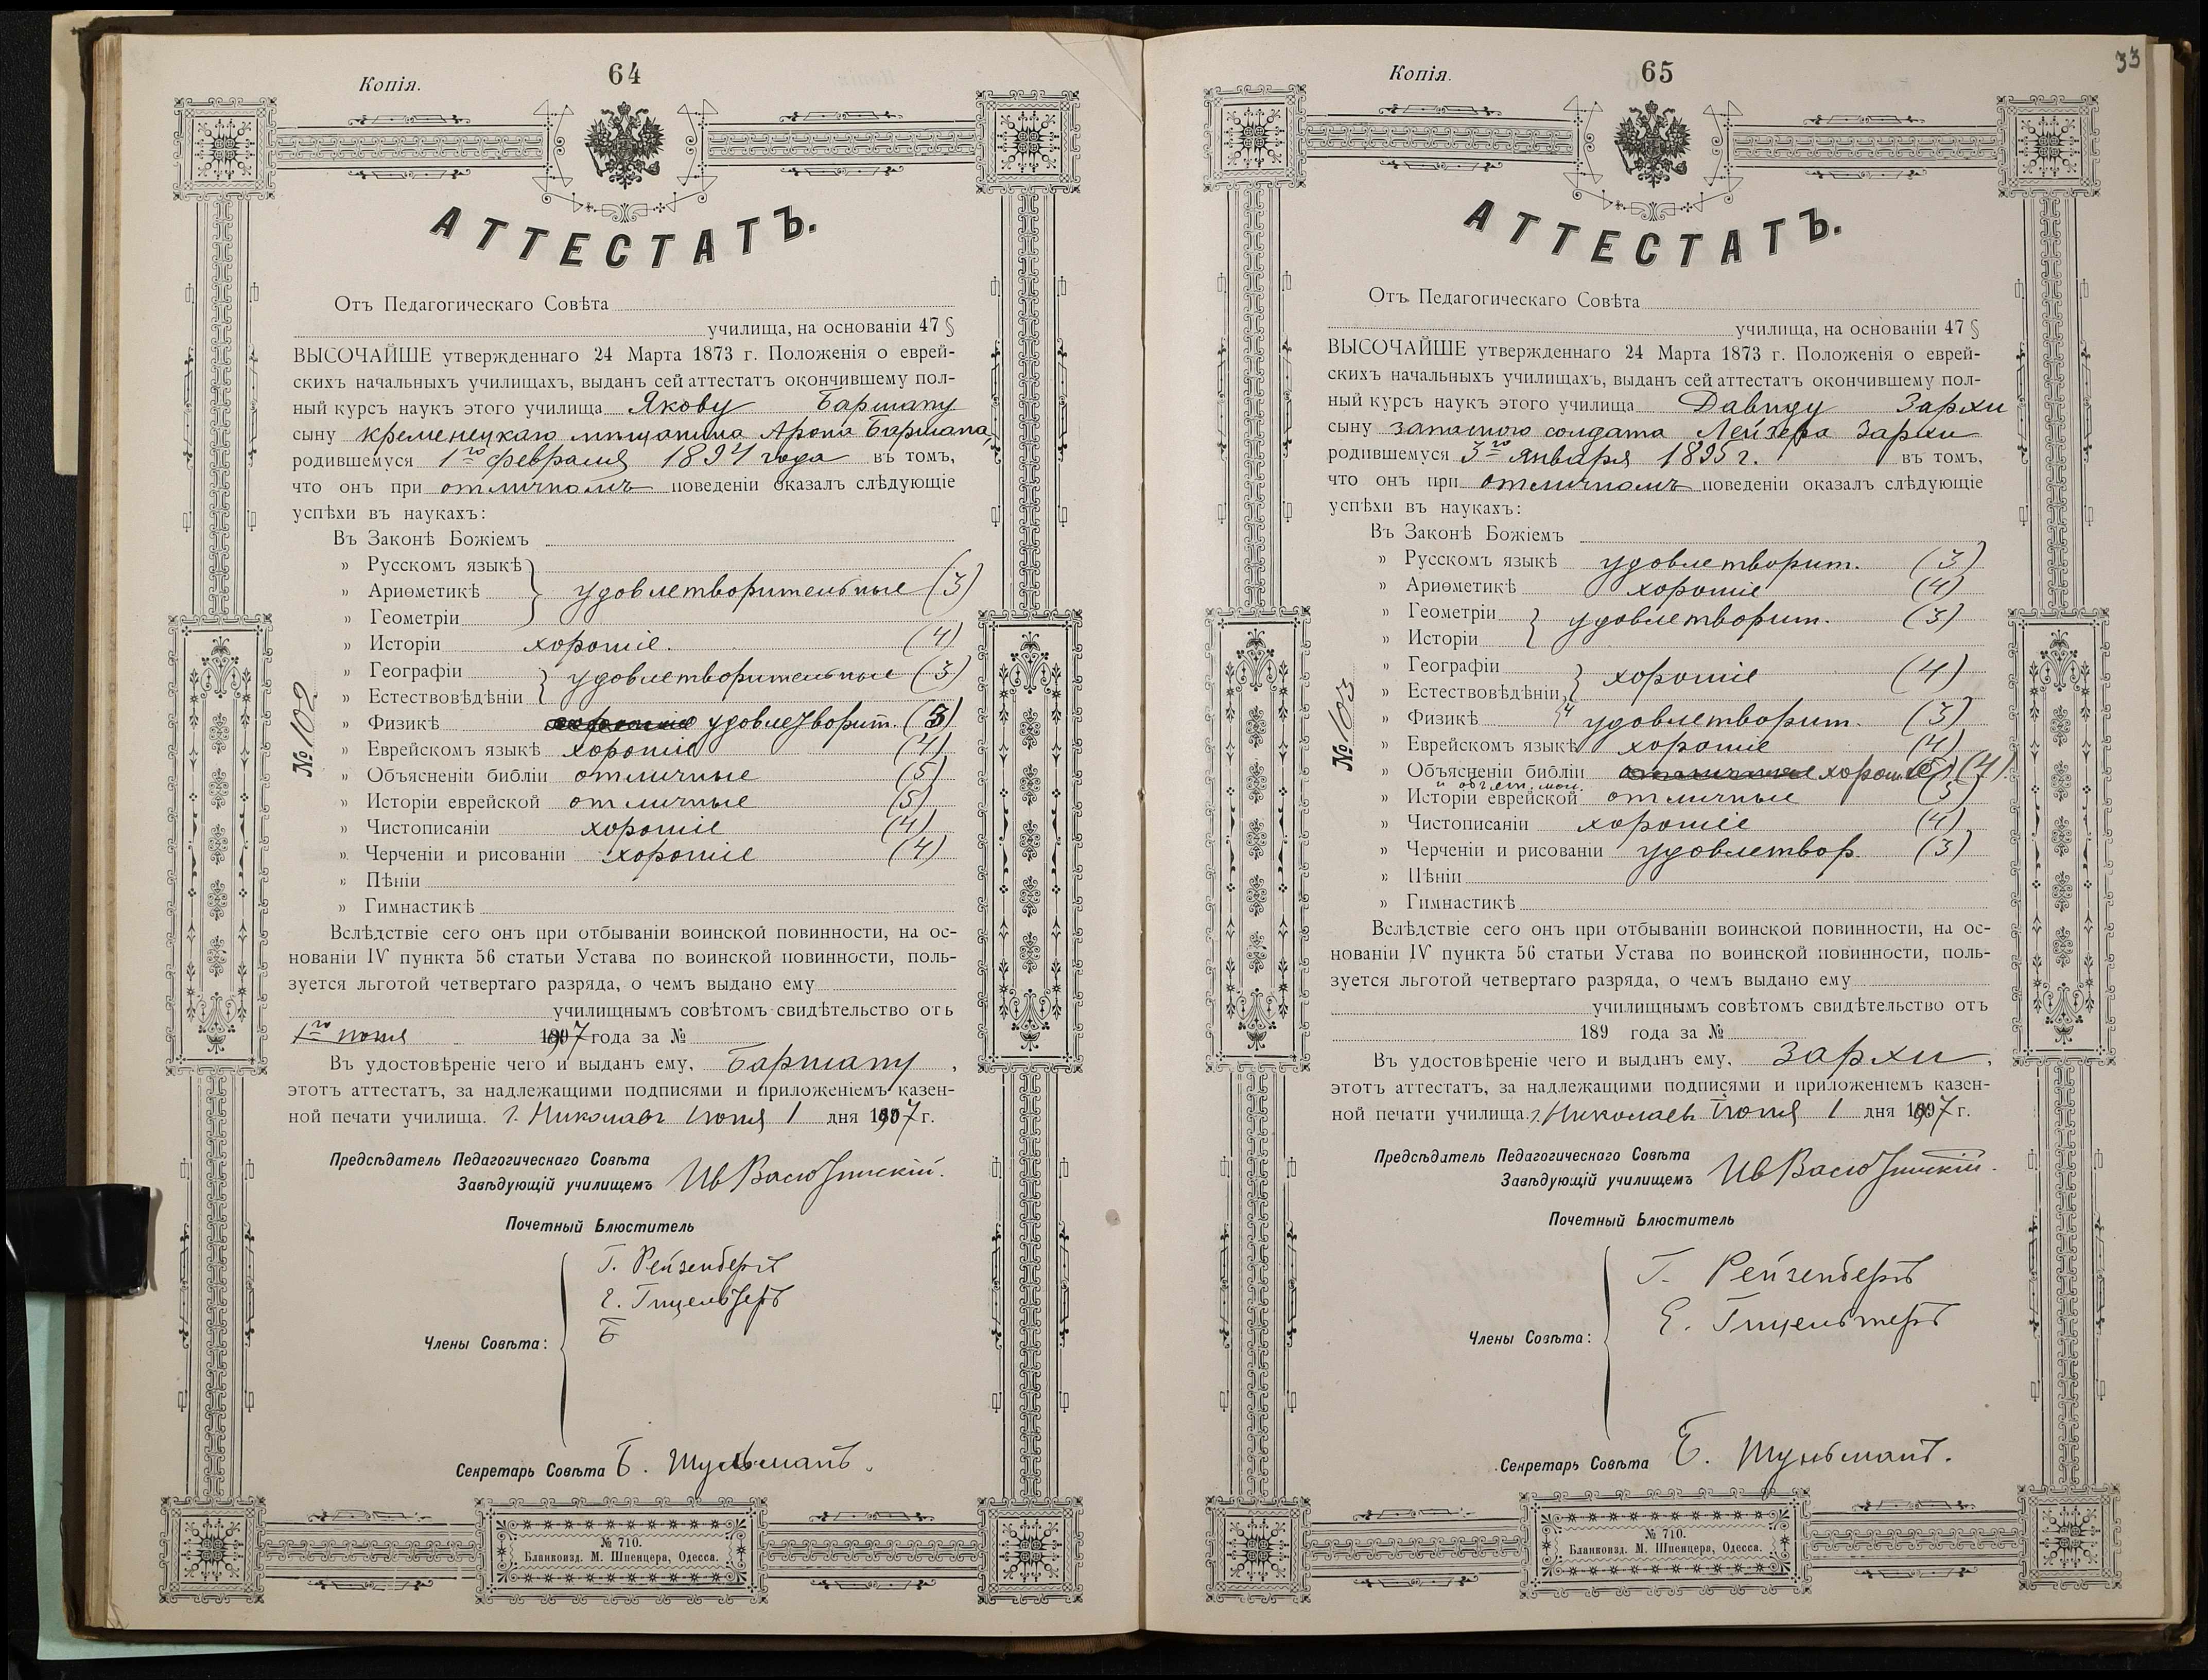 Копія.
64
АТТЕСТАТЪ.
Отъ Педагогическаго Совѣта
училища, на основаніи 47 §
ВЫСОЧАЙШЕ утвержденнаго 24 Марта 1873 г. Положенія о еврей-
скихъ начальныхъ училищахъ, выданъ сей аттестатъ окончившему пол-
ный курсъ наукъ этого училища Якову Барману
сыну кременецкаго мѣщанина Арона Бармана,
родившемуся 1го февраля 1894 года въ томъ,
что онъ при отличномъ поведеніи оказалъ слѣдующіе
успѣхи въ наукахъ:
Въ Законѣ Божіемъ
» Русскомъ языкѣ
» Ариѳметикѣ удовлетворительные (3)
» Геометріи
» Исторіи хорошіе. (4)
» Географіи удовлетворительные (3)
» Естествовѣдѣніи
» Физикѣ удовлетворит. (3)
» Еврейскомъ языкѣ хорошіе (4)
» Объясненіи библіи отличные (5)
» Исторіи еврейской отличные (5)
» Чистописаніи хорошіе (4)
» Черченіи и рисованіи хорошіе (4)
» Пѣніи
» Гимнастикѣ
№ 102
Вслѣдствіе сего онъ при отбываніи воинской повинности, на ос-
нованіи IV пункта 56 статьи Устава по воинской повинности, поль-
зуется льготой четвертаго разряда, о чемъ выдано ему
училищнымъ совѣтомъ свидѣтельство отъ
1го іюня 1907 года за №
Въ удостовѣреніе чего и выданъ ему, Барману,
этотъ аттестатъ, за надлежащими подписями и приложеніемъ казен-
ной печати училища. г. Николаевъ Іюня 1 дня 1907 г.
Предсѣдатель Педагогическаго Совѣта
Завѣдующій училищемъ Ив Васютинскій.
Почетный Блюститель
Г. Рейзенбергъ
Е. Гицельтеръ
Б
Члены Совѣта:
Секретарь Совѣта Б. Шульманъ.
№ 710.
Бланкоизд. М. Шпенцера, Одесса.
Копія.
65
33
АТТЕСТАТЪ.
Отъ Педагогическаго Совѣта
училища, на основаніи 47 §
ВЫСОЧАЙШЕ утвержденнаго 24 Марта 1873 г. Положенія о еврей-
скихъ начальныхъ училищахъ, выданъ сей аттестатъ окончившему пол-
ный курсъ наукъ этого училища Давиду Зархи
сыну запасного солдата Лейзера Зархи
родившемуся 3го Января 1895 г. въ томъ,
что онъ при отличномъ поведеніи оказалъ слѣдующіе
успѣхи въ наукахъ:
Въ Законѣ Божіемъ
» Русскомъ языкѣ удовлетворит. (3)
» Ариѳметикѣ хорошіе (4)
» Геометріи удовлетворит. (3)
» Исторіи
» Географіи хорошіе (4)
» Естествовѣдѣніи
» Физикѣ удовлетворит. (3)
» Еврейскомъ языкѣ хорошіе (4)
» Объясненіи библіи отличные хорошіе (5) (4).
» Исторіи еврейской отличные (5)
» Чистописаніи хорошіе (4)
» Черченіи и рисованіи удовлетвор. (3)
» Пѣніи
» Гимнастикѣ
№ 103
Вслѣдствіе сего онъ при отбываніи воинской повинности, на ос-
нованіи IV пункта 56 статьи Устава по воинской повинности, поль-
зуется льготой четвертаго разряда, о чемъ выдано ему
училищнымъ совѣтомъ свидѣтельство отъ
189 года за №
Въ удостовѣреніе чего и выданъ ему, Зархи,
этотъ аттестатъ, за надлежащими подписями и приложеніемъ казен-
ной печати училища. г. Николаевъ Іюня 1 дня 1907 г.
Предсѣдатель Педагогическаго Совѣта
Завѣдующій училищемъ Ив Васютинскій.
Почетный Блюститель
Г. Рейзенбергъ
Е. Гицельтеръ
Члены Совѣта:
Секретарь Совѣта Б. Шульманъ.
№ 710.
Бланкоизд. М. Шпенцера, Одесса.